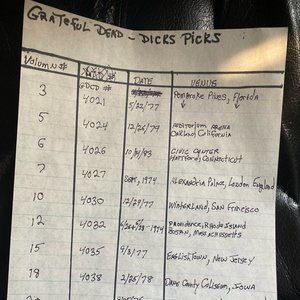 GRATEFUL DEAD - DICKS PICKS
VOLUMN # DATE VENUE
3 GDCD # 4021 5/22/77 PEMBROKE PINES, FLORIDA
5 4024 12/26/79 AUDITORIUM ARENA
OAKLAND, CALIFORNIA
6 4026 10/14/83 CIVIC CENTER
HARTFORD, CONNECTICUT
7 4027 SEPT, 1974 ALEXANDRIA PALACE, LONDON ENGLAND
10 4030 12/29/77 WINTERLAND, SAN FRANCISCO
12 4032 1974 PROVIDENCE, RHODE ISLAND
BOSTON, MASSACHUSETTS
15 4035 9/3/77 ENGLISHTOWN, NEW JERSEY
18 4038 2/25/78 DANE COUNTY COLISEUM, IOWA